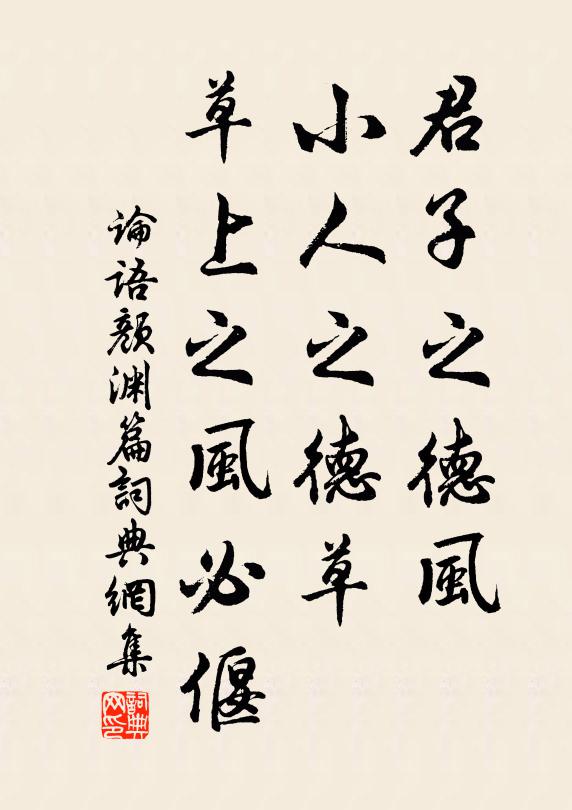 君子之德風
小人之德草
草上之風必偃
論語顏渊篇詞典網集
詞典
网印